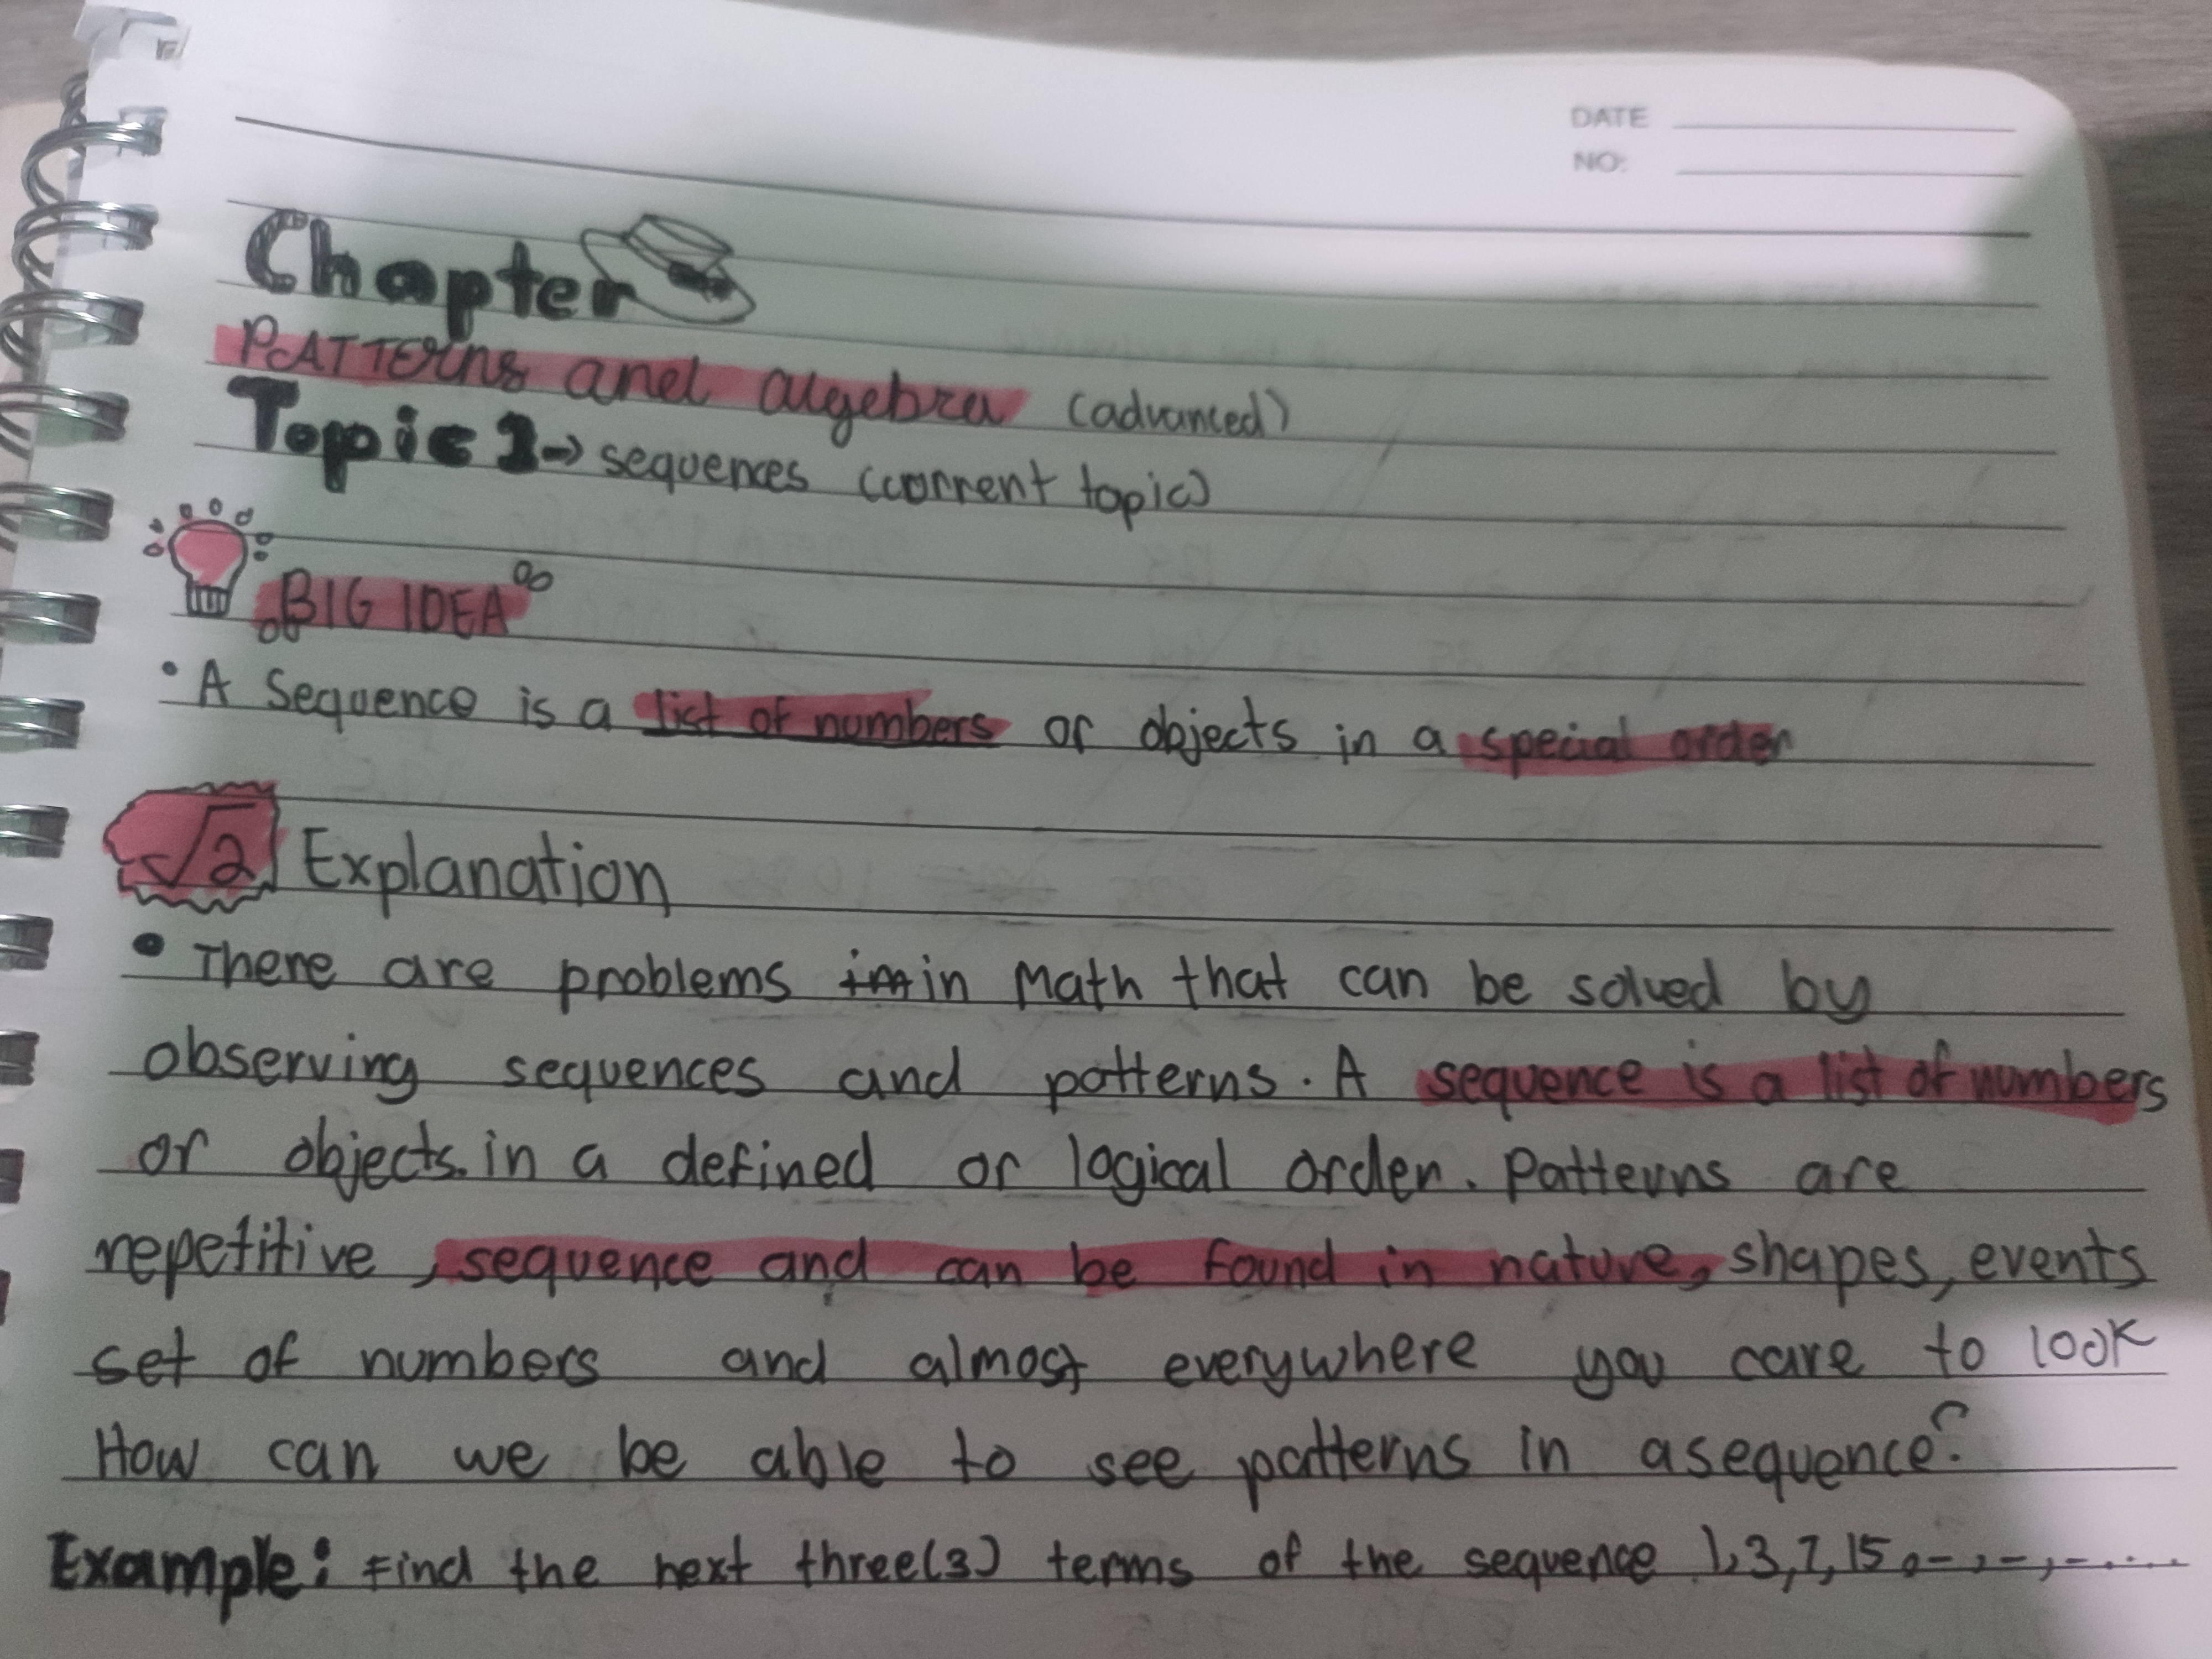 DATE
NO:
Chapter
PATTERns and algebra (advanced)
Topic 1→ sequences (current topic)
BIG IDEA
• A Sequence is a list of numbers or objects in a special order
√2 Explanation
• There are problems in Math that can be solved by
observing sequences and patterns. A sequence is a list of numbers
or objects. in a defined or logical order. Patterns are
repetitive, sequence and can be found in nature, shapes, events
set of numbers and almost everywhere you care to look
How can we be able to see patterns in a sequence?
Example: Find the next three(3) terms of the sequence 1,3,7,15,-,-,-....